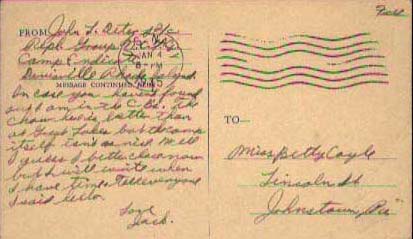 Free
FROM: John L.
Camp Endicott
Davisville Rhode Island
MESSAGE CONTINUED
JAN 4
6-PM
In case you haven't found
out I am in the C.Bs. The
chow here is better than
at Great Lakes but the camp
itself isn't as nice. Well
I guess I better close now
but I will write when
I have time. Tell everyone
I said hello.
Love
Jack.
TO
Miss Betty Coyle
Lincoln St
Johnstown, Pa